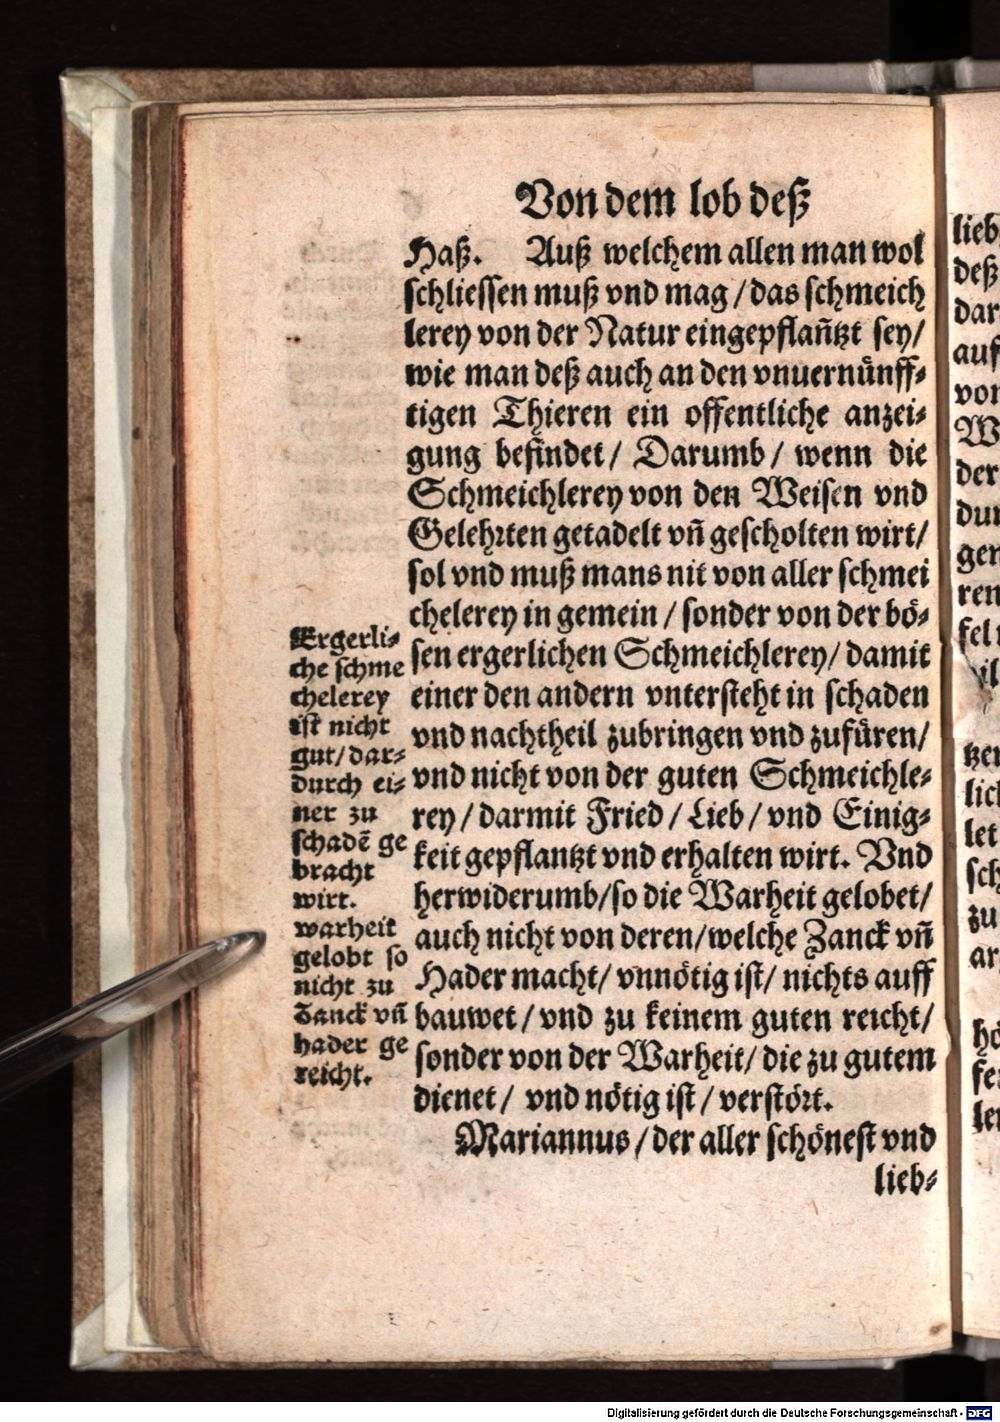 Von dem lob deß
Haß. Auß welchem allen man wol
schliessen muß vnd mag / das schmeich
lerey von der Natur eingepflañtzt sey /
wie man deß auch an den vnuernünff⸗
tigen Thieren ein offentliche anzei⸗
gung befindet / Darumb / wenn die
Schmeichlerey von den Weisen vnd
Gelehrten getadelt vñ gescholten wirt /
sol vnd muß mans nit von aller schmei
chelerey in gemein / sonder von der bö⸗
sen ergerlichen Schmeichlerey / damit
einer den andern vntersteht in schaden
vnd nachtheil zubringen vnd zufüren /
vnd nicht von der guten Schmeichle⸗
rey / darmit Fried / Lieb / vnd Einig⸗
keit gepflantzt vnd erhalten wirt. Vnd
herwiderumb / so die Warheit gelobet /
auch nicht von deren / welche Zanck vñ
Hader macht / vnnötig ist / nichts auff
bauwet / vnd zu keinem guten reicht /
sonder von der Warheit / die zu gutem
dienet / vnd nötig ist / verstört.
Mariannus / der aller schönest vnd
lieb⸗
Ergerli⸗
che schme
chelerey
ist nicht
gut / dar⸗
durch ei⸗
ner zu
schadē ge
bracht
wirt.
warheit
gelobt so
nicht zu
Zanck vñ
hader ge
reicht.
lieb
deß
dar
auf
vor
W
der
dur
gen
ren
fel
tzen
lich
let
sch
zu
ar
hö
fe
ler
Digitalisierung gefördert durch die Deutsche Forschungsgemeinschaft - DFG